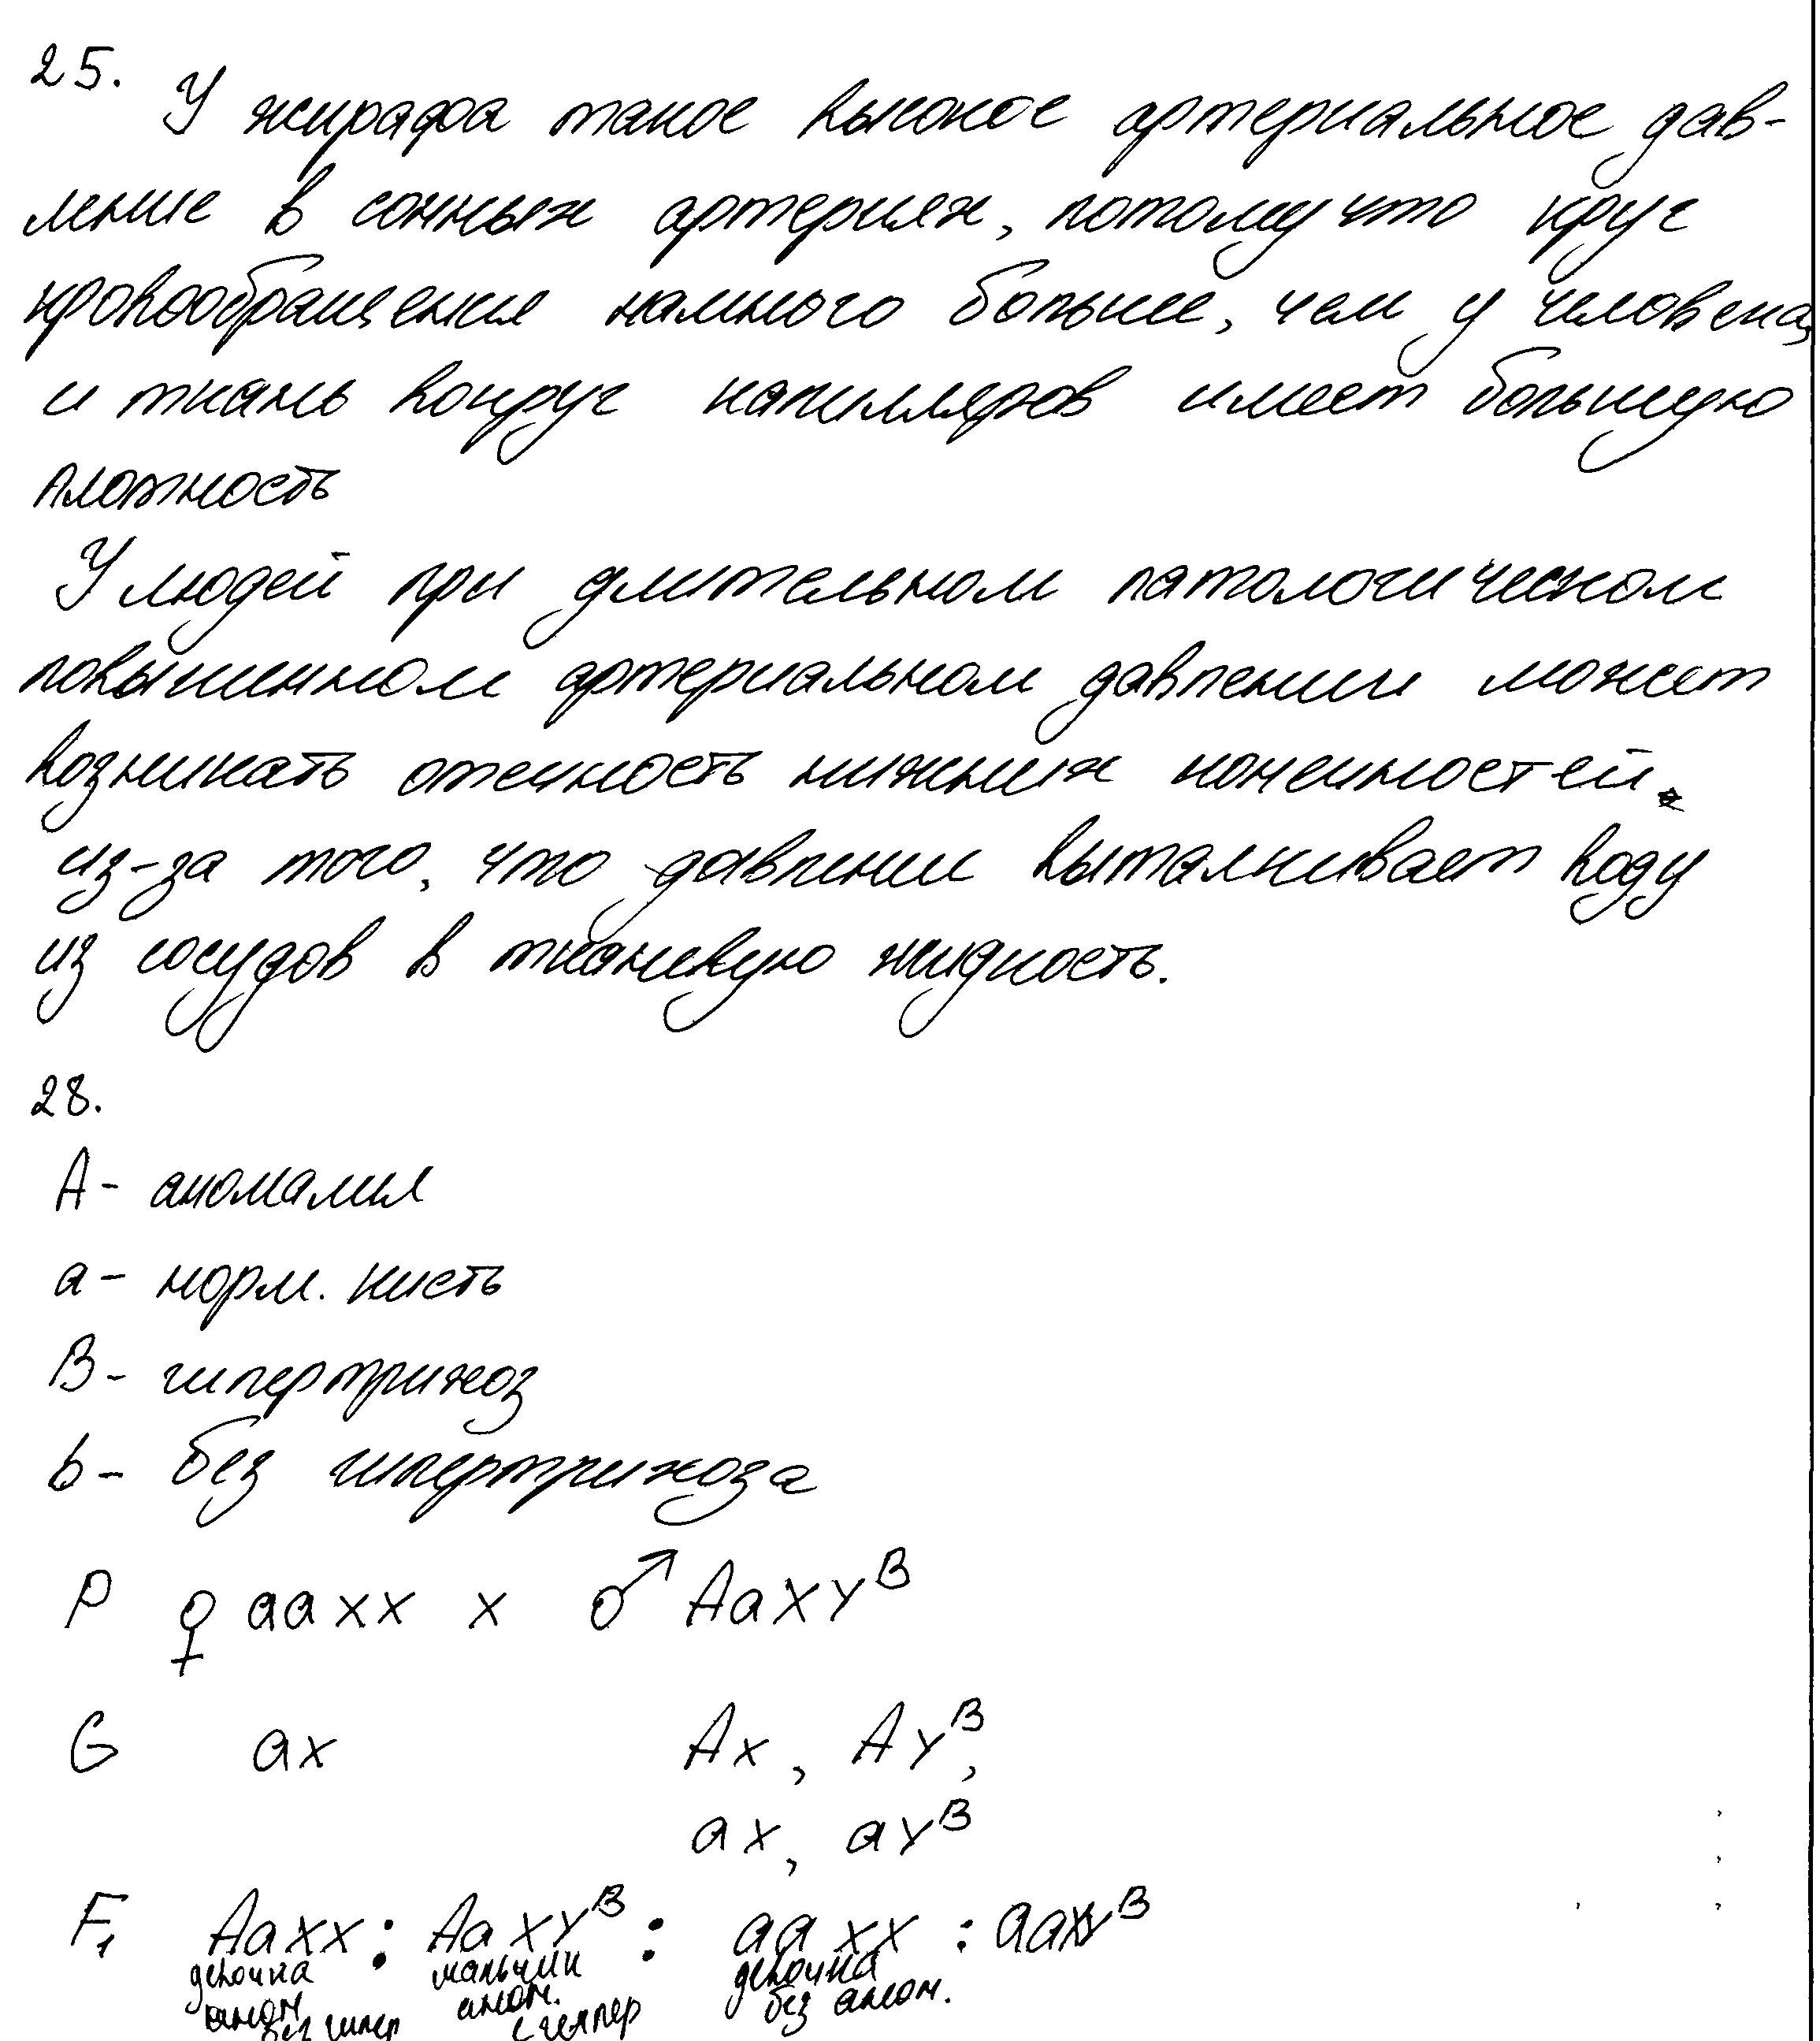 25.
У жирафа такое высокое артериальное дав-
ление в сонных артериях, потому что круг
кровообращения намного больше, чем у человека,
и ткань вокруг капилляров имеет большую
плотность
У людей при длительном патологическом
повышенном артериальном давлении может
возникать отечность нижних конечностей
из-за того, что давление выталкивает воду
из сосудов в тканевую жидкость.
28.
А - аномалия
а - норм. кисть
В - гипертрихоз
b - без гипертрихоза
P ♀ aaxx x ♂ AaXY^B
G ax Ax, AY^B,
ax, aY^B
F₁ Aaxx : AaXY^B : aaxx : aaxY^B
девочка мальчик девочка
аном аном. без аном.
без гипер с гипер